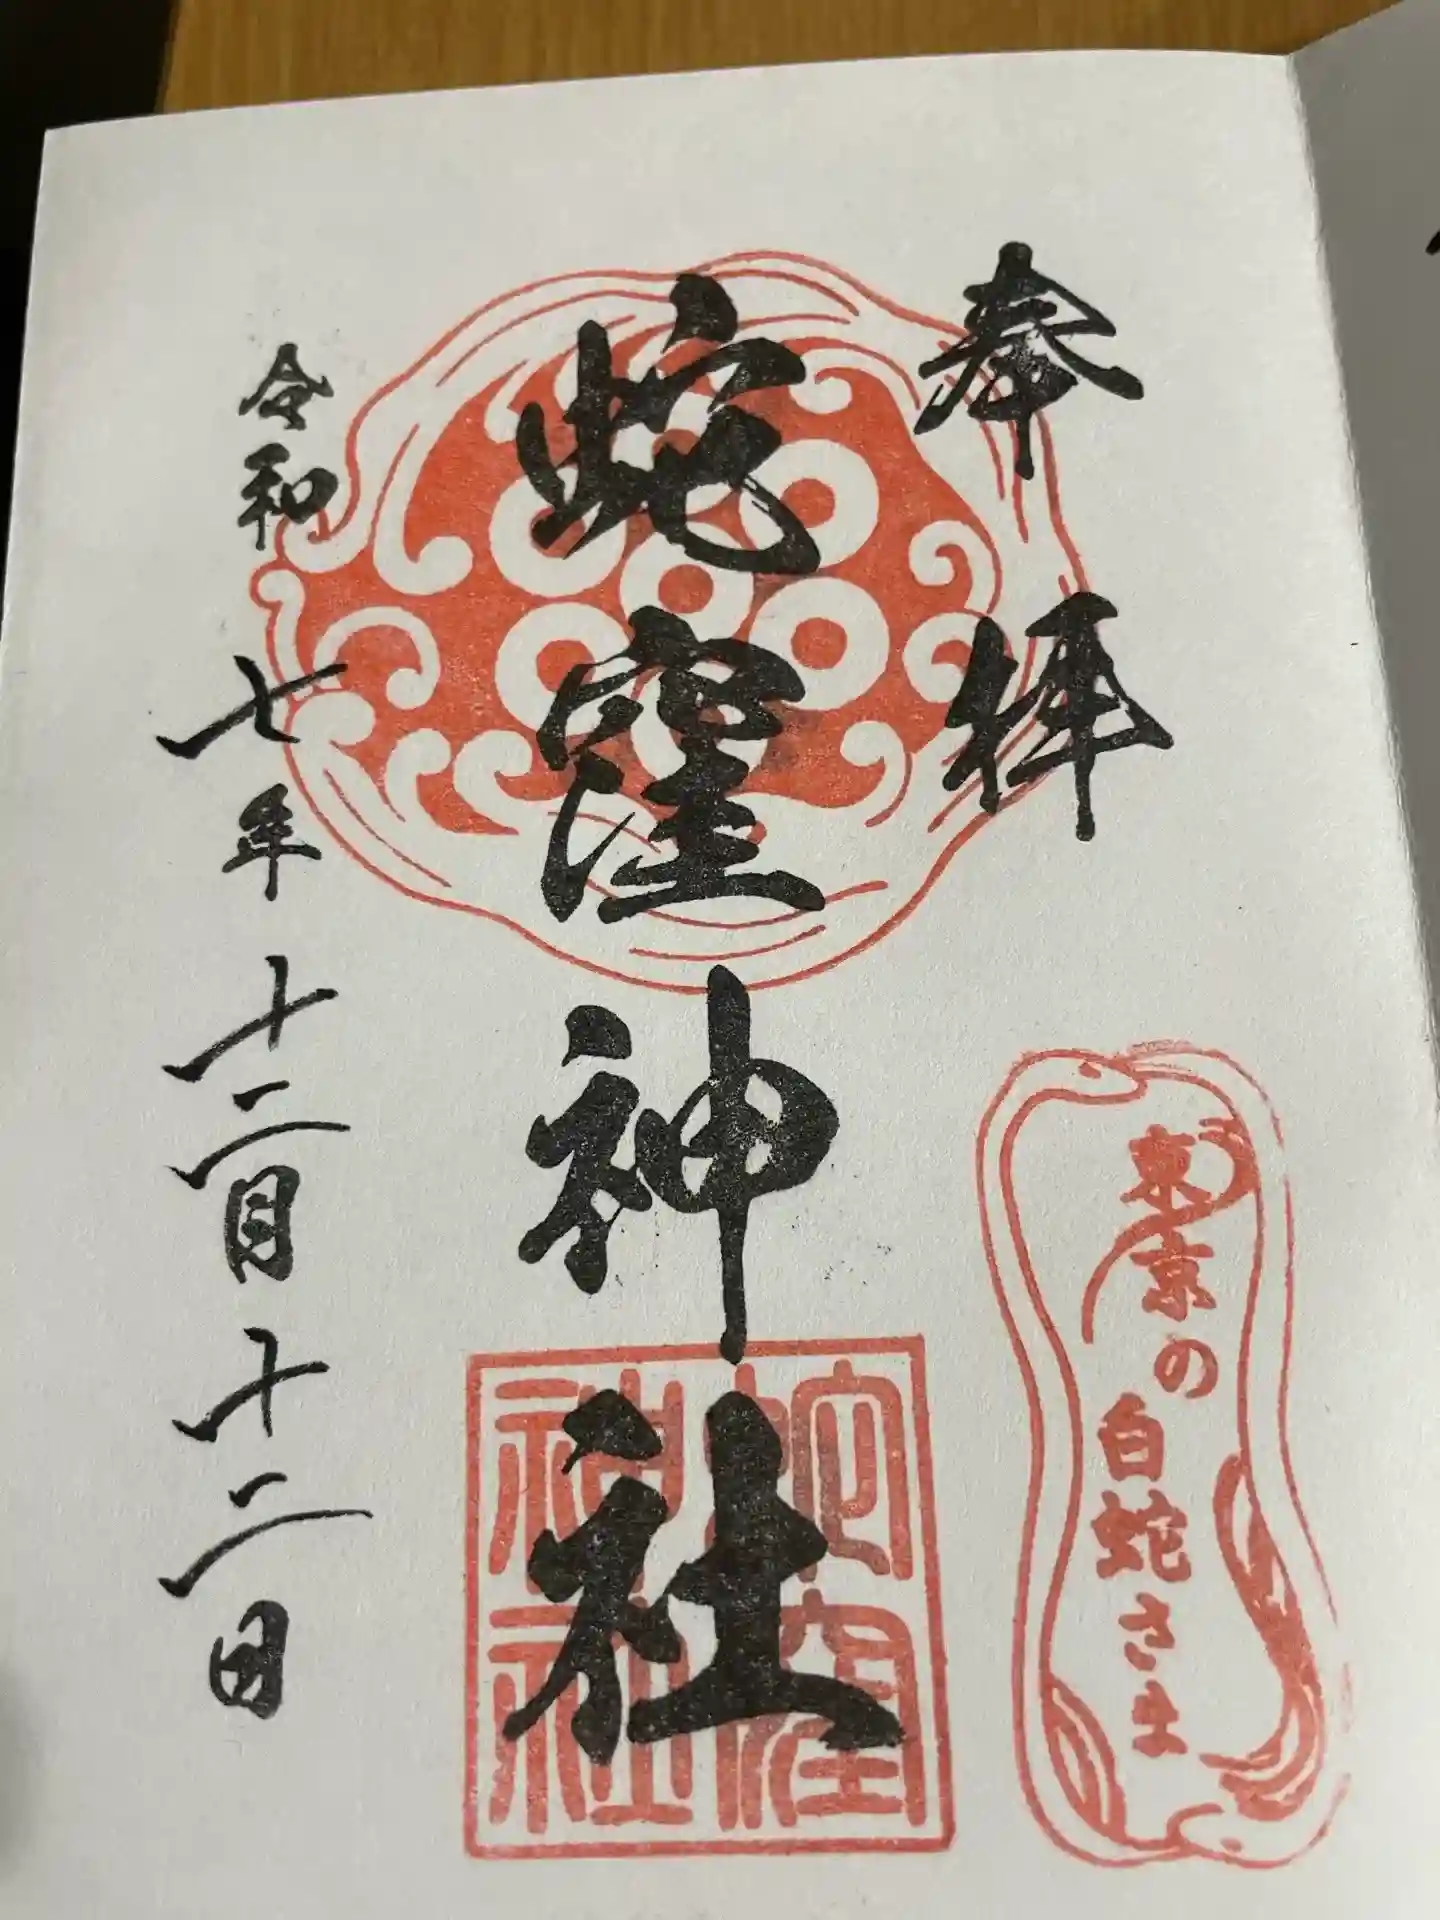 奉拝
蛇窪神社
令和七年十二月十二日
東京の
白蛇さま
蛇窪
神社